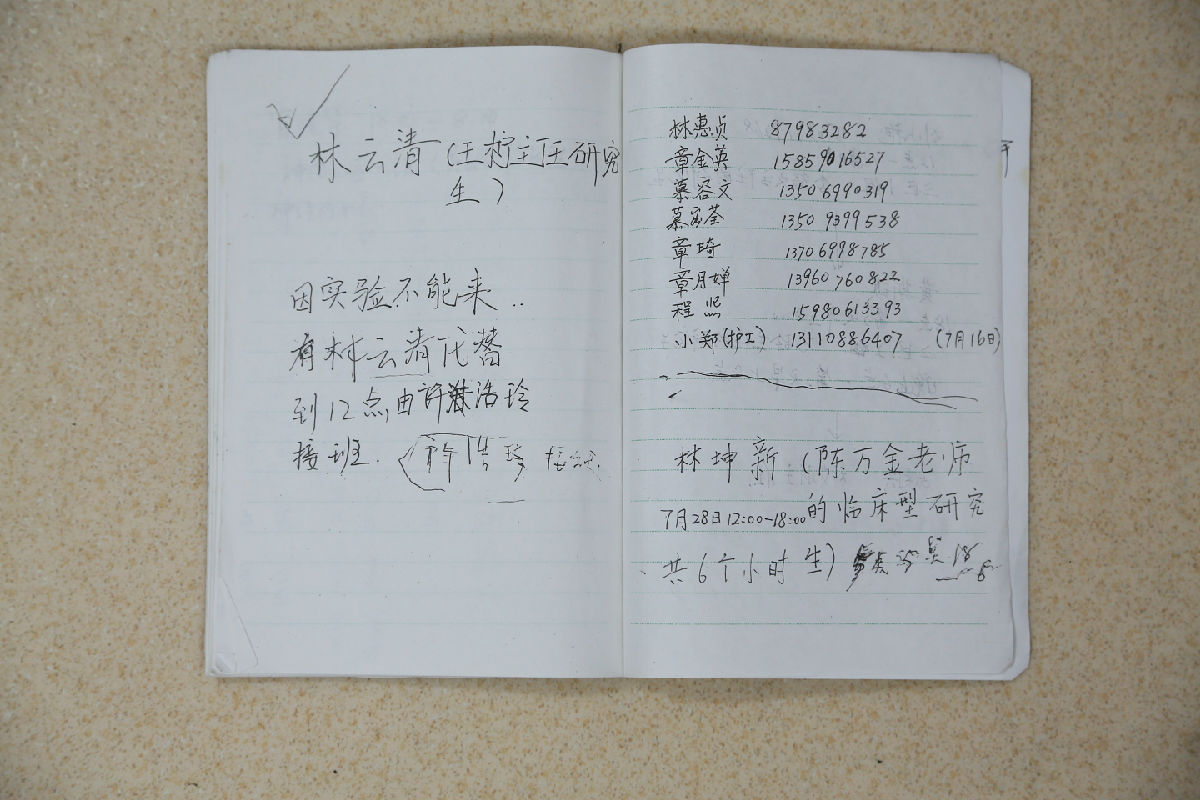 林云清(王柠主任研究
生)
因实验不能来..
有林云清代替
到12点,由许浩玲
接班.
林惠贞 87983282
章金英 15859016527
慕容文 13506990319
慕容荃 13509399538
章琦 13706998785
章月婵 13960760822
程 15980613393
小郑(护工) 13110886407 (7月16日)
林坤新(陈万金老师
7月28日12:00-18:00的临床型研究
共6个小时 生)